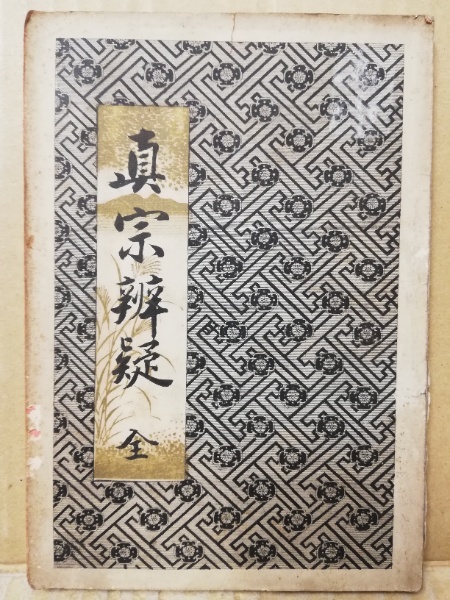 真宗辨疑 全